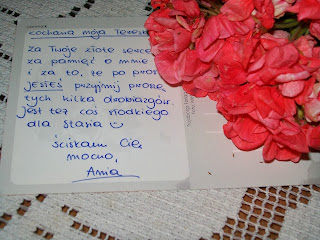 Kochana moja Tereska
Za Twoje złote serce
za pamięć o mnie
i za to, że po prost
JESTEŚ przyjmij proszę
tych kilka drobiazgów.
Jest też coś słodkiego
dla Stasia
Ściskam Cię
mocno,
Ania